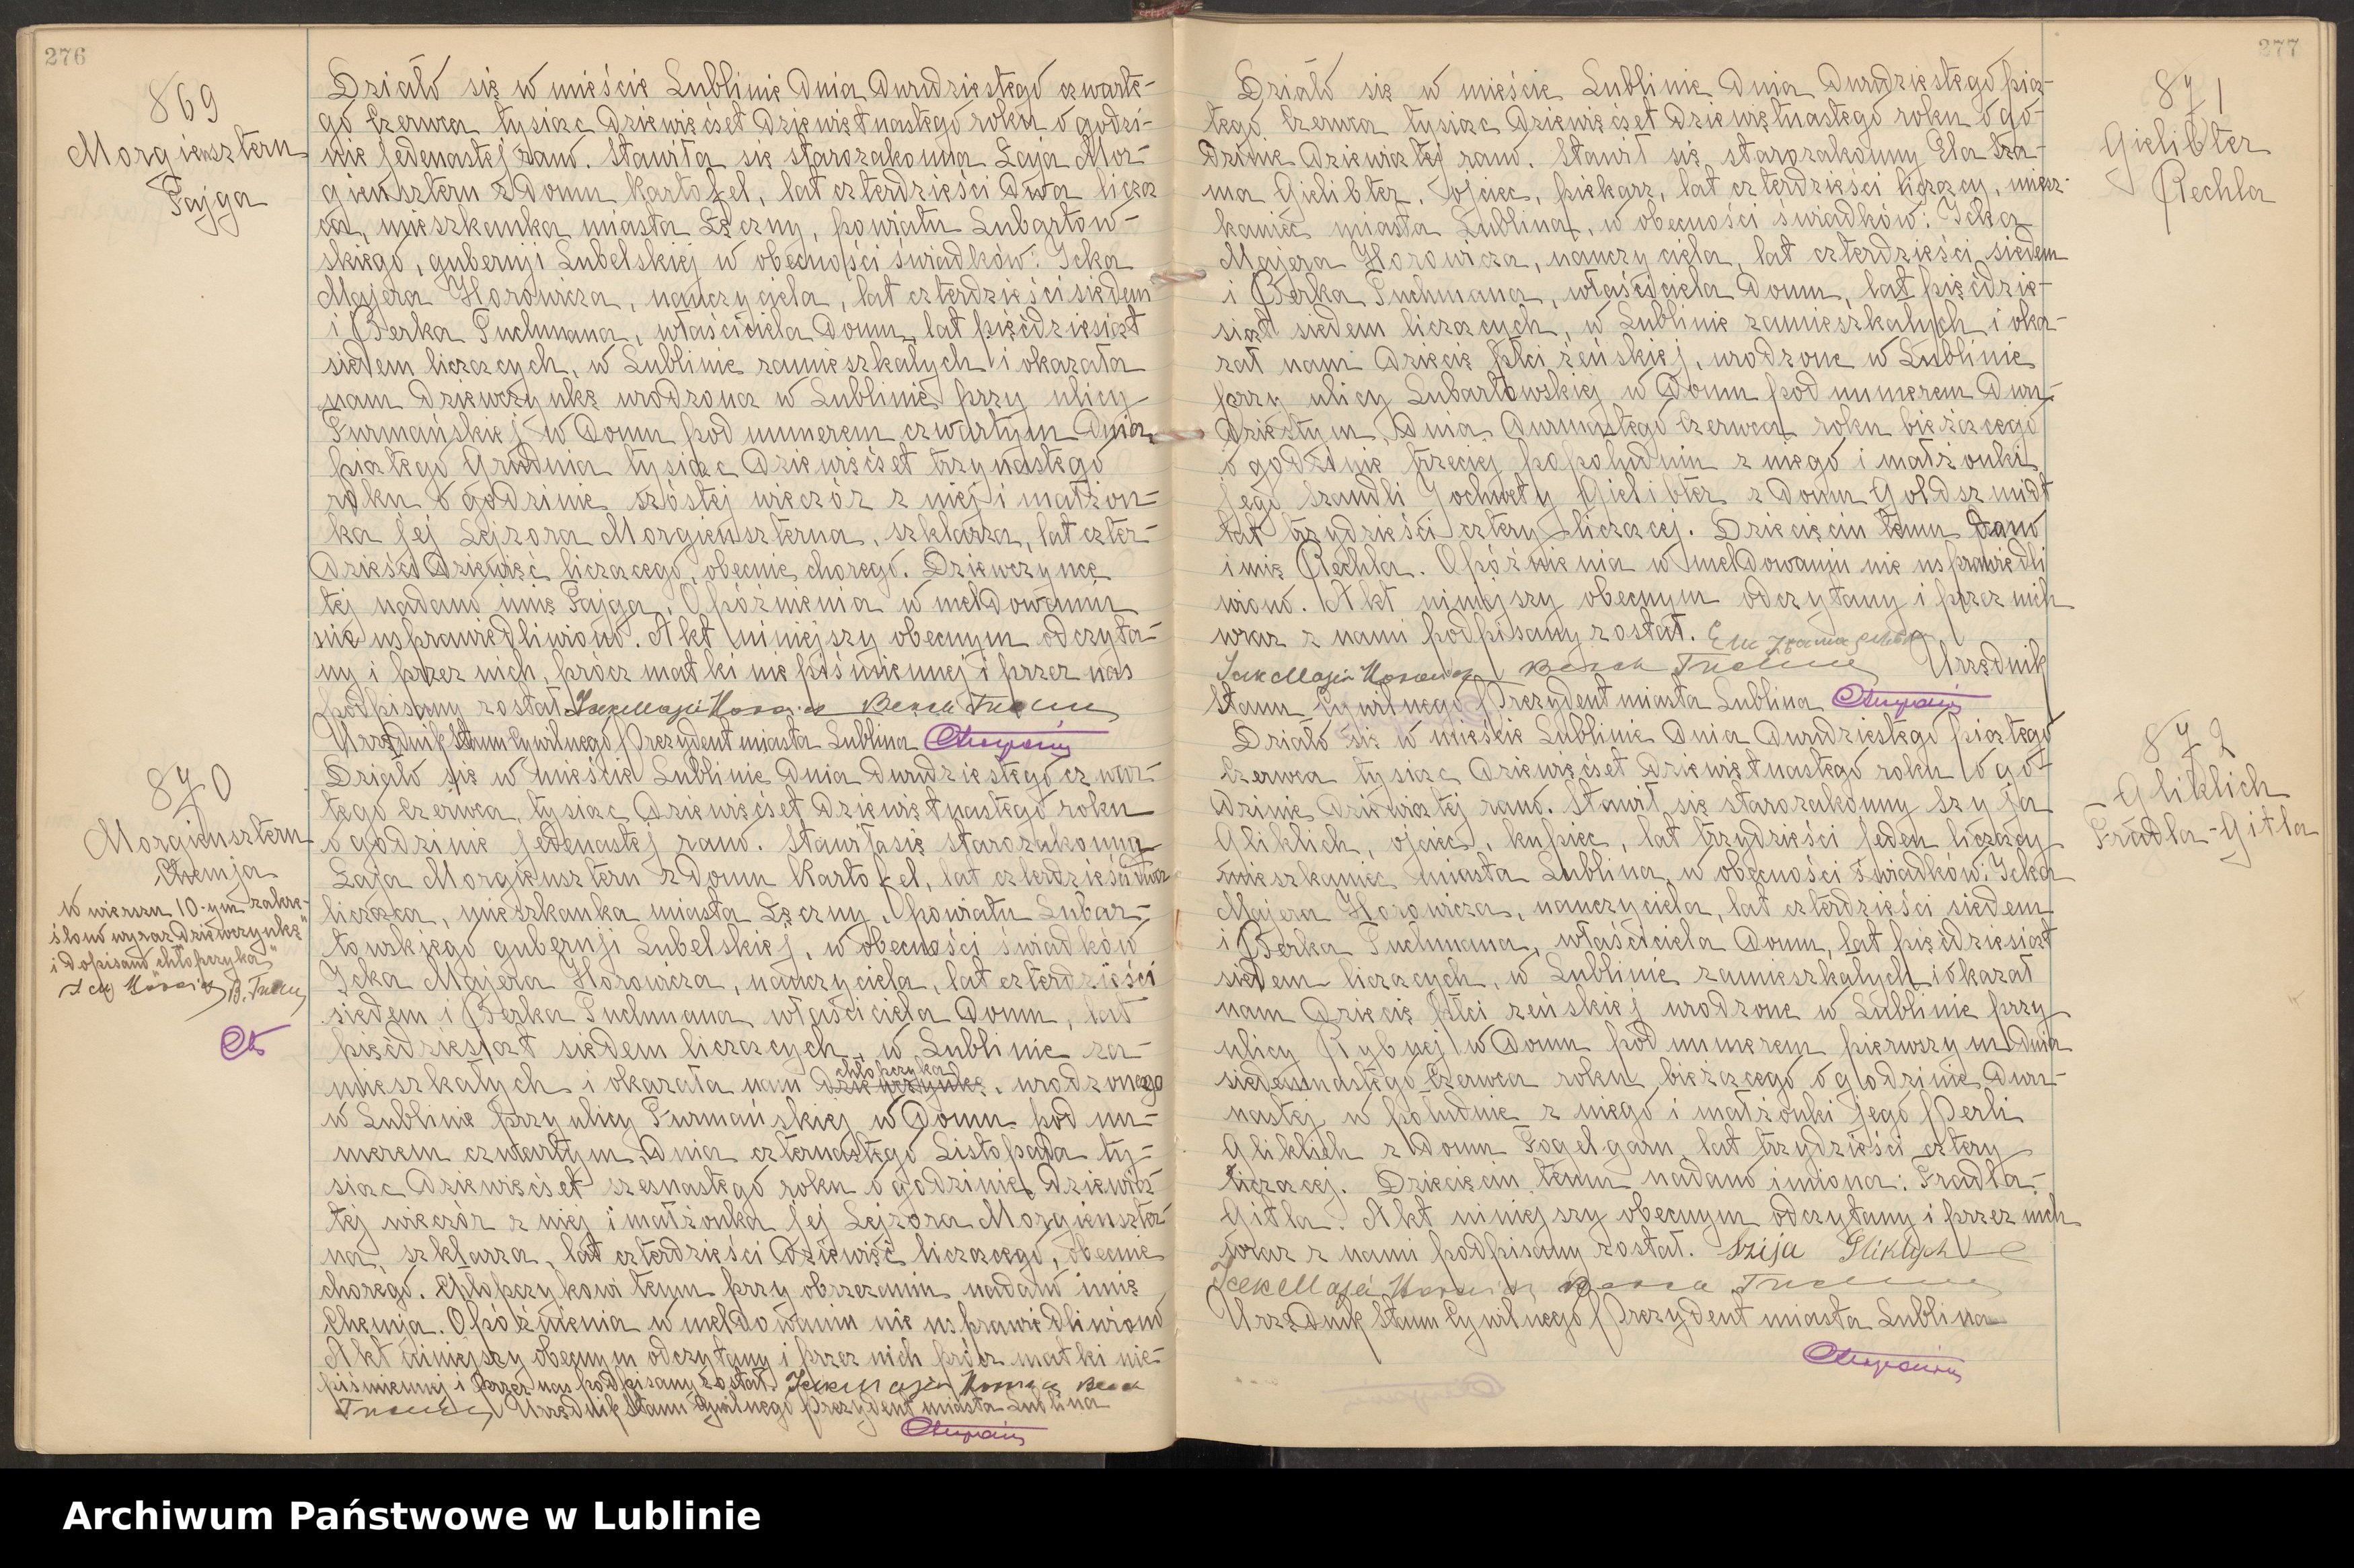 276
869
Morgiensztern
Fajga
Działo się w mieście Lublinie dnia dwudziestego czwarte-
go Czerwca tysiąc dziewięćset dziewiętnastego roku o godzi-
nie jedenastej rano. Stawiła się starozakonna Łaja Mor-
giensztern z domu Kartofel, lat czterdzieści dwa licząca
, mieszkanka miasta Łęczny, powiatu Lubartow-
skiego, gubernji Lubelskiej w obecności świadków: Icka
Majera Horowicza, nauczyciela, lat czterdzieści siedem
i Berka Tuchmana, właściciela domu, lat pięćdziesiąt
siedem liczących, w Lublinie zamieszkałych i okazała
nam dziewczynkę urodzoną w Lublinie przy ulicy
Furmańskiej w domu pod numerem czwartym dnia
piątego Grudnia tysiąc dziewięćset trzynastego
roku o godzinie szóstej wieczór z niej i małżon-
ka jej Lejzora Morgienszterna, szklarza, lat czter-
dzieści dziewięć liczącego, obecnie chorego. Dziewczynce
tej nadano imię Fajga. Opóźnienia w meldowaniu
nie usprawiedliwiono. Akt niniejszy obecnym odczyta-
ny i przez nich, prócz matki nie piśmiennej i przez nas
podpisany został.
Urzędnik Stanu Cywilnego Prezydent miasta Lublina
870
Morgiensztern
Chemja
w wierszu 10-ym zakre-
ślono wyraz "dziewczynkę"
i dopisano "chłopczyka"
Działo się w mieście Lublinie dnia dwudziestego czwar-
tego Czerwca, tysiąc dziewięćset dziewiętnastego roku
o godzinie jedenastej rano. Stawiła się starozakonna
Łaja Morgiensztern z domu Kartofel, lat czterdzieści dwa
licząca, mieszkanka miasta Łęczny, powiatu Lubar-
towskiego gubernji Lubelskiej, w obecności świadków
Icka Majera Horowicza, nauczyciela, lat czterdzieści
siedem i Berka Tuchmana, właściciela domu, lat
pięćdziesiąt siedem liczących, w Lublinie za-
chłopczyka
mieszkałych i okazała nam dziewczynkę, urodzonego
w Lublinie przy ulicy Furmańskiej w domu pod nu-
merem czwartym, dnia czternastego Listopada ty-
siąc dziewięćset szesnastego roku o godzinie dziewią-
tej wieczór z niej i małżonka jej Lejzora Morgienszter-
na, szklarza, lat czterdzieści dziewięć liczącego, obecnie
chorego. Chłopczykowi temu przy obrzezaniu nadano imię
Chemja. Opóźnienia w meldowaniu nie usprawiedliwiono
Akt niniejszy obecnym odczytany i przez nich prócz matki nie-
piśmiennej i przez nas podpisany został.
Urzędnik Stanu Cywilnego Prezydent miasta Lublina
277
871
Gielibter
Rechla
Działo się w mieście Lublinie dnia dwudziestego pią-
tego Czerwca tysiąc dziewięćset dziewiętnastego roku o go-
dzinie dziewiątej rano. Stawił się starozakonny Ela Sza-
ma Gielibter, ojciec, piekarz, lat czterdzieści liczący, miesz-
kaniec miasta Lublina, w obecności świadków: Icka
Majera Horowicza, nauczyciela, lat czterdzieści siedem
i Berka Tuchmana, właściciela domu, lat pięćdzie-
siąt siedem liczących, w Lublinie zamieszkałych i oka-
zał nam dziecię płci żeńskiej, urodzone w Lublinie
przy ulicy Lubartowskiej w domu pod numerem dwu-
dziestym, dnia dwunastego Czerwca roku bieżącego
o godzinie trzeciej popołudniu z niego i małżonki
jego Szandli Jochwety Gielibter z domu Goldszmidt
lat trzydzieści cztery liczącej. Dziecięciu temu dano
imię Rechla. Opóźnienia w meldowaniu nie usprawiedli
wiono. Akt niniejszy obecnym odczytany i przez nich
wraz z nami podpisany został.
Urzędnik
Stanu Cywilnego Prezydent miasta Lublina
872
Gliklich
Fradla-Gitla
Działo się w mieście Lublinie dnia dwudziestego piątego
Czerwca tysiąc dziewięćset dziewiętnastego roku o go-
dzinie dziewiątej rano. Stawił się starozakonny Szyja
Gliklich, ojciec, kupiec, lat trzydzieści jeden liczący
mieszkaniec miasta Lublina, w obecności świadków: Icka
Majera Horowicza, nauczyciela, lat czterdzieści siedem
i Berka Tuchmana, właściciela domu, lat pięćdziesiąt
siedem liczących, w Lublinie zamieszkałych i okazał
nam dziecię płci żeńskiej urodzone w Lublinie przy
ulicy Rybnej w domu pod numerem pierwszym dnia
siedemnastego Czerwca roku bieżącego o godzinie dwu-
nastej w południe z niego i małżonki jego Perli
Gliklich z domu Fogelgarn lat trzydzieści cztery
liczącej. Dziecięciu temu nadano imiona: Fradla-
Gitla. Akt niniejszy obecnym odczytany i przez nich
wraz z nami podpisany został. Szija Gliklych
Urzędnik Stanu Cywilnego Prezydent miasta Lublina
Archiwum Państwowe w Lublinie